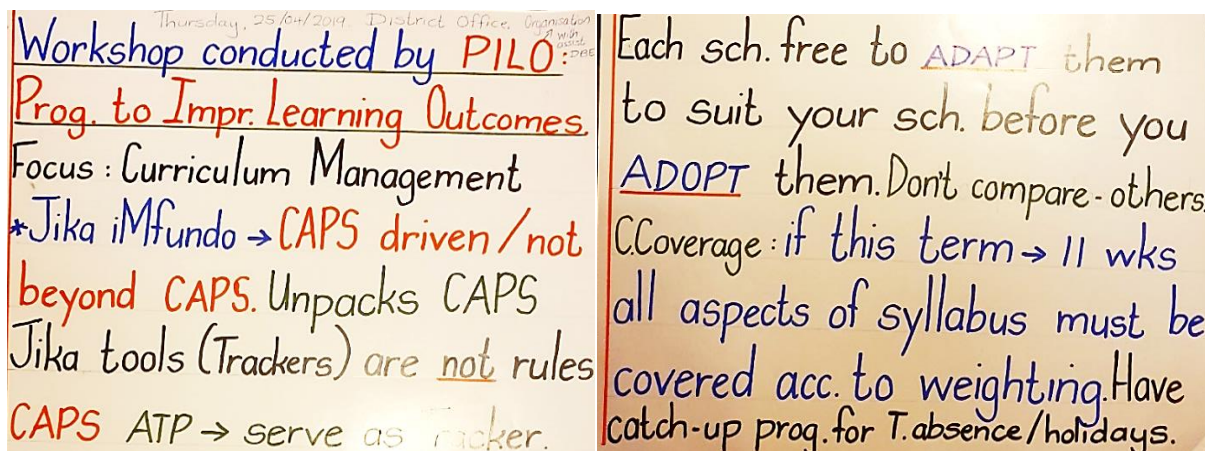 Thursday, 25/04/2019. District Office. Organisation
with
assist
DBE
Workshop conducted by PILO:
Prog. to Impr. Learning Outcomes.
Focus : Curriculum Management
*Jika iMfundo → CAPS driven/not
beyond CAPS. Unpacks CAPS
Jika tools (Trackers) are not rules
CAPS ATP → serve as Tracker.
Each sch. free to ADAPT them
to suit your sch. before you
ADOPT them. Don't compare - others.
C.Coverage : if this term → 11 wks
all aspects of syllabus must be
covered acc. to weighting. Have
catch-up prog. for T. absence/holidays.